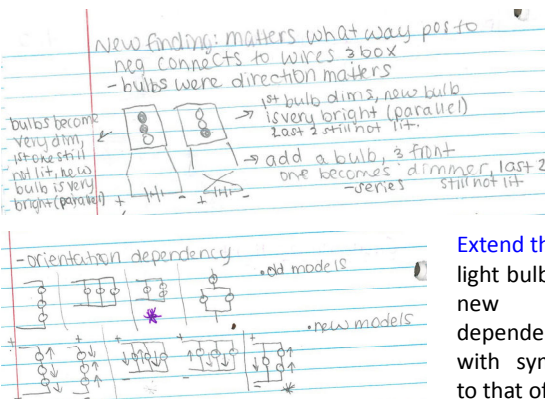 New finding: matters what way pos to
neg connects to wires 3 box
- bulbs were direction matters
bulbs become
very dim,
1st one still
not lit, new
bulb is very
bright (parallel)
+ - + -
1st bulb dims, new bulb
is very bright (parallel)
Last 2 still not lit.
add a bulb, 3 front
one becomes dimmer, last 2
-series still not lit
-orientation dependency
•old models
•new models
+ + + + +
- - - - -
Extend th
light bulb
new
depende
with syn
to that of